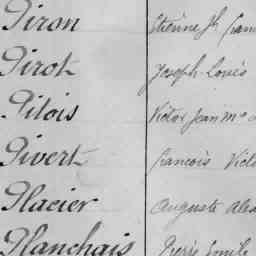 Piron Etienne Jh
Pirot Joseph Louis
Pitois Victor Jean Me
Pivert francois Victo
Placier Auguste Alex
Planchais Pierre Emile